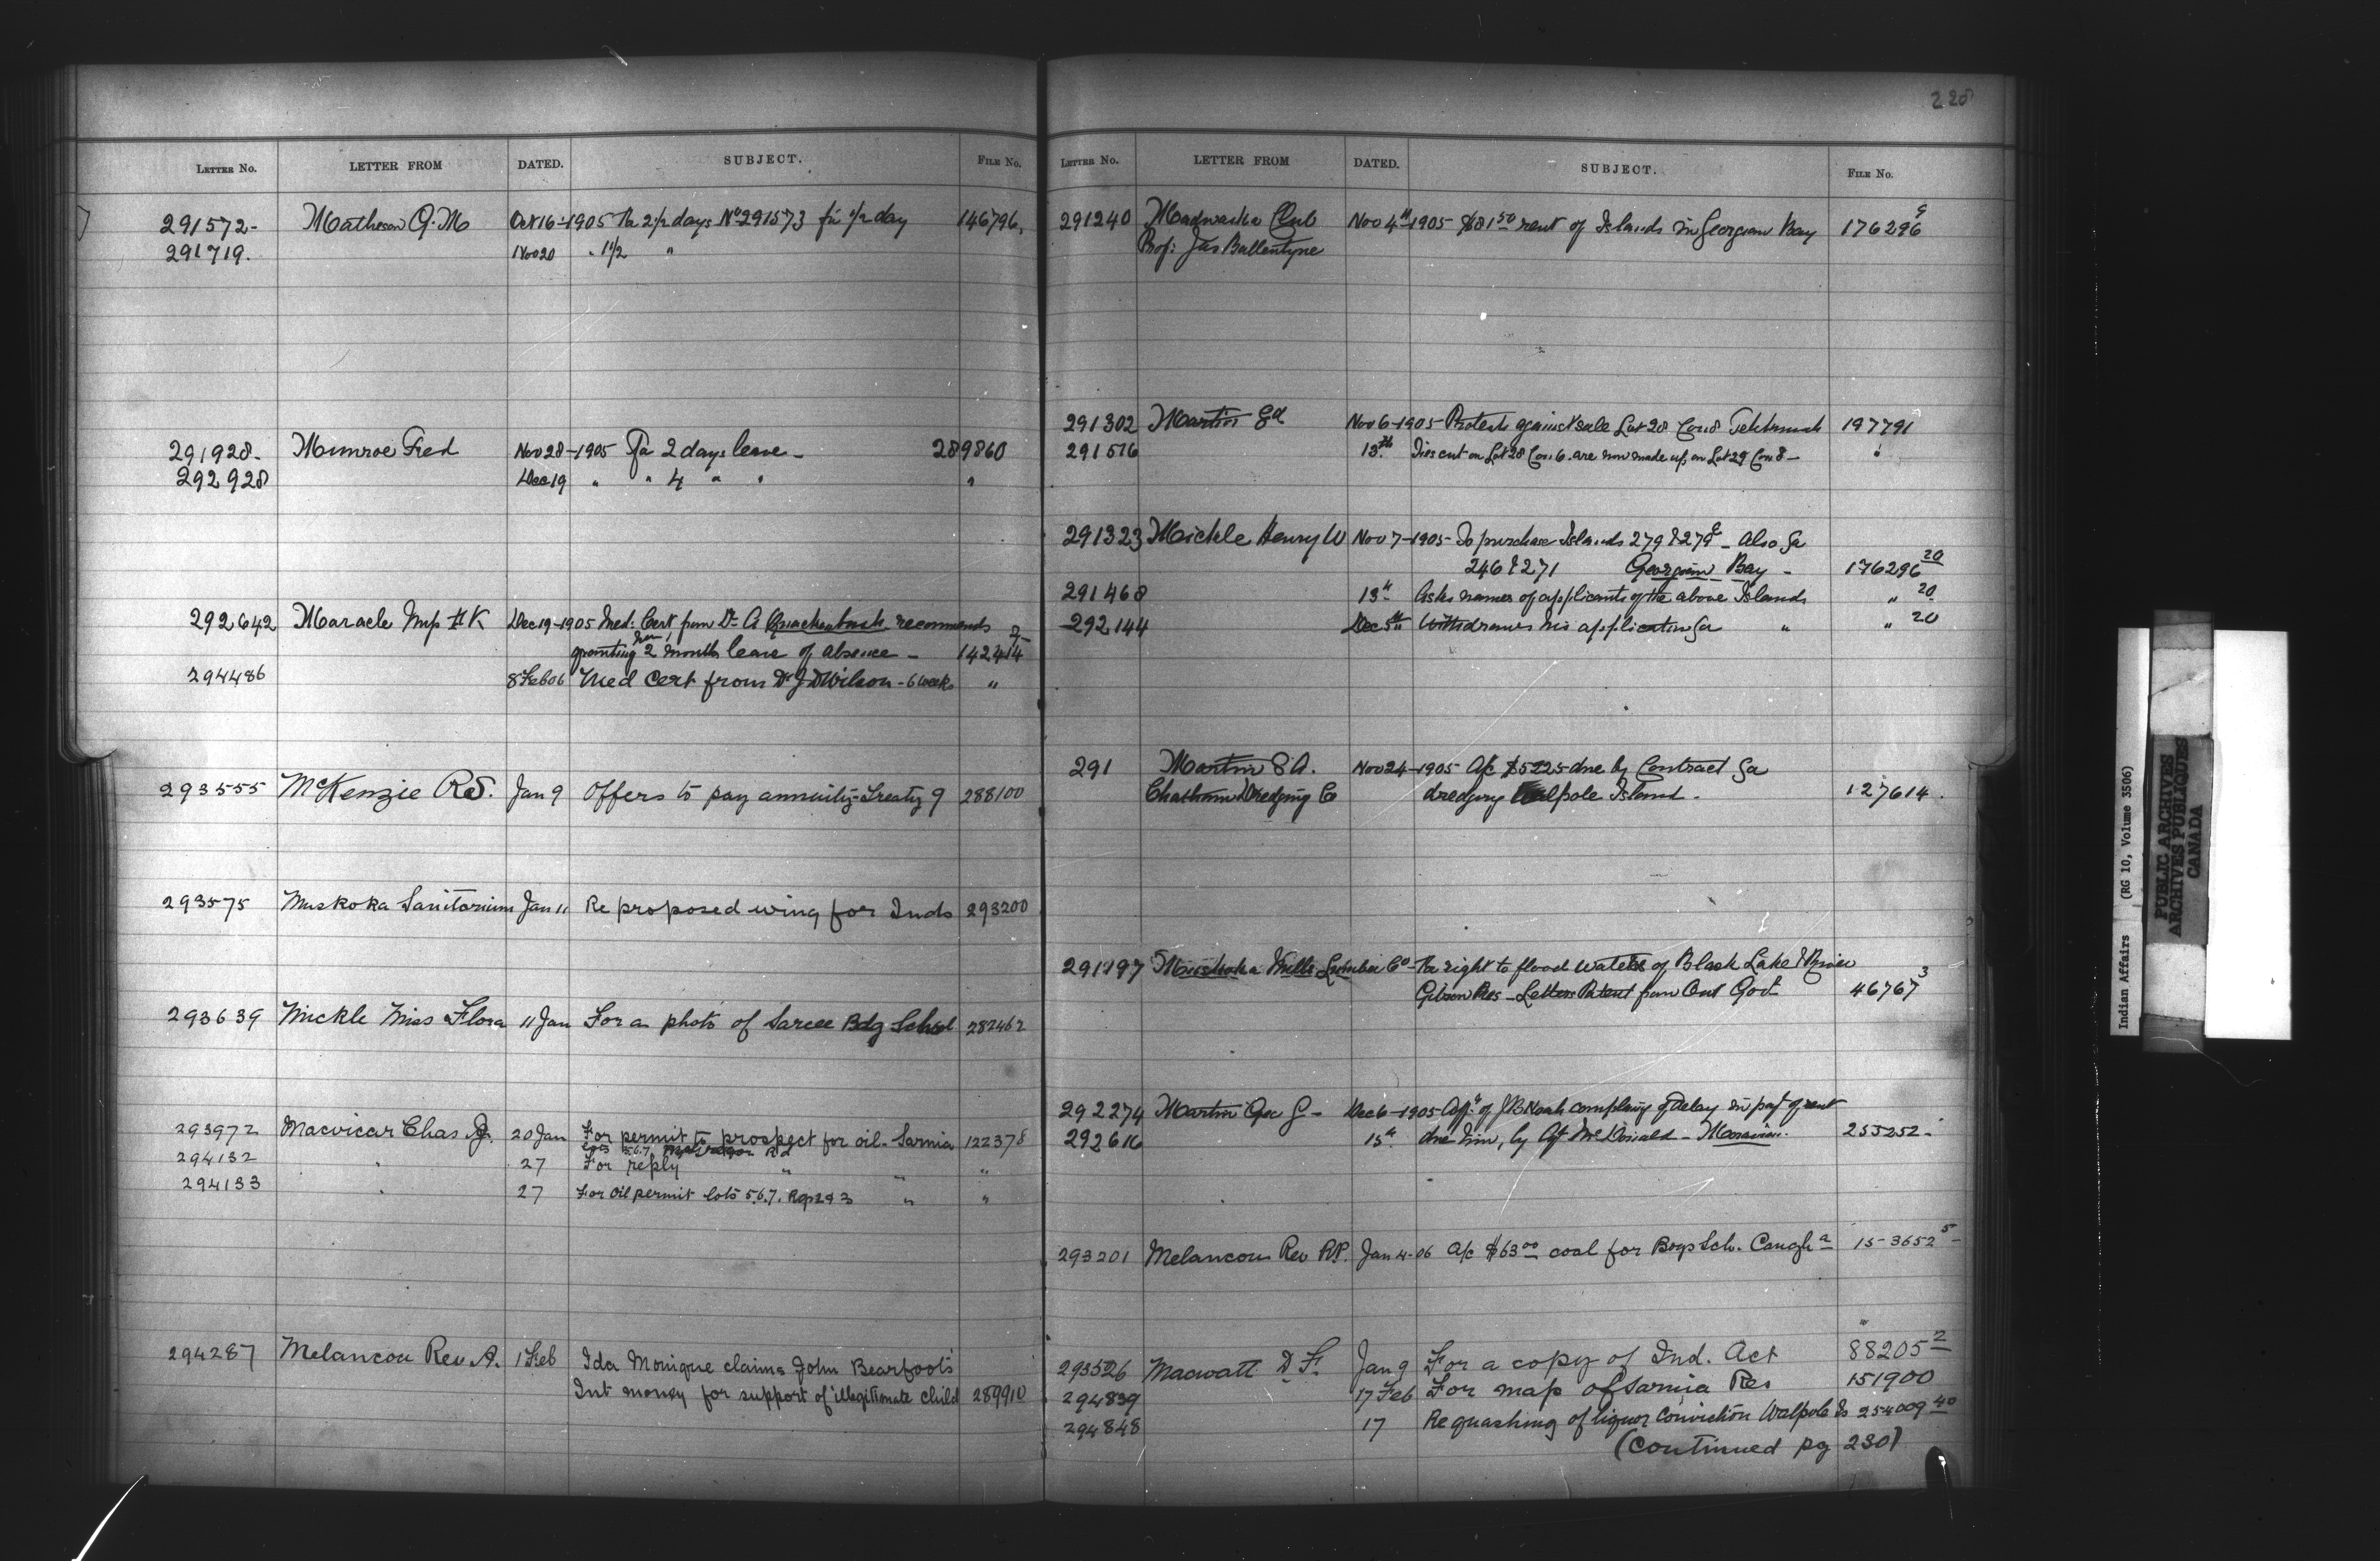 228
LETTER NO. LETTER FROM DATED. SUBJECT. FILE NO.
291572- Matheson G. M Oct 16-1905 For 2 1/2 days No 291573 for 1/2 day 146796
291719. Nov 20 " 1 1/2 "
291928- Munroe Fred Nov 28-1905 For 2 days leave - 289860
292928 Dec 19 " " 4 " " "
292642 Maracle H K Dec 19-1905 Med. Cert from Dr A Quackenbush recommends
granting her 2 months leave of absence - 142414
294486 8 Feb 06 Med Cert from Dr J D Wilson - 6 weeks "
293555 McKenzie R S. Jan 9 Offers to pay annuity-Treaty 9 288100
293575 Muskoka Sanitorium Jan 11 Re proposed wing for Inds 293200
293639 Mickle Miss Flora 11 Jan For a photo of Sarcee Bdg School 282462
293972 Macvicar Chas 20 Jan For permit to prospect for oil - Sarnia 122378
lots 5.6.7
294132 " 27 For reply " " "
294133 " 27 For oil permit lots 5.6.7. Rge 2 & 3 " "
294287 Melancon Rev A. 1 Feb Ida Monique claims John Bearfoots
Int money for support of illegitimate child 289910
LETTER NO. LETTER FROM DATED. SUBJECT. FILE NO.
291240 Madwaska Club Nov 4th 1905 $81 50 rent of Islands in Georgian Bay 176296 9
Prof: Jas Ballentyne
291302 Martin Ed Nov 6-1905 Protests against sale Lot 28 Con 8 197791
291576 13th Ties cut on Lot 28 Con 6. are now made up on Lot 29 Con 8 - "
291323 Mickle Henry W Nov 7-1905 To purchase Islands 279 & Also
246 & 271 Georgian Bay - 176296 20
291468 13th Asks names of applicants of the above Islands " 20
292144 Dec 5th Withdraws his application " " 20
291 Martin S A. Nov 24-1905 A/c $5225 due by Contract
Chatham Dredging Co dredging Walpole Island - 127614.
291797 Muskoka Mills Lumber Co - For right to flood waters of Black Lake & River
Gibson Res - Letters Patent from Ont Govt 46767 3
292274 Martin Geo G - Dec 6-1905 of J B Noah complaing of delay in payt of rent
292616 15th due him, by Agt McDonald - Moravian. 255252-
293201 Melancon Rev Jan 4-06 A/c $63 00 coal for Boys Sch. Caugha 153652 5
293526 Macwatt D. F. Jan 9 For a copy of Ind. Act 88205 2
294839 17 Feb For map of Sarnia Res 151900
294848 17 Re quashing of liquor conviction Walpole Is 254009 40
(Continued pg 230)
Indian Affairs (RG 10, Volume 3506)
PUBLIC ARCHIVES
ARCHIVES PUBLIQUES
CANADA